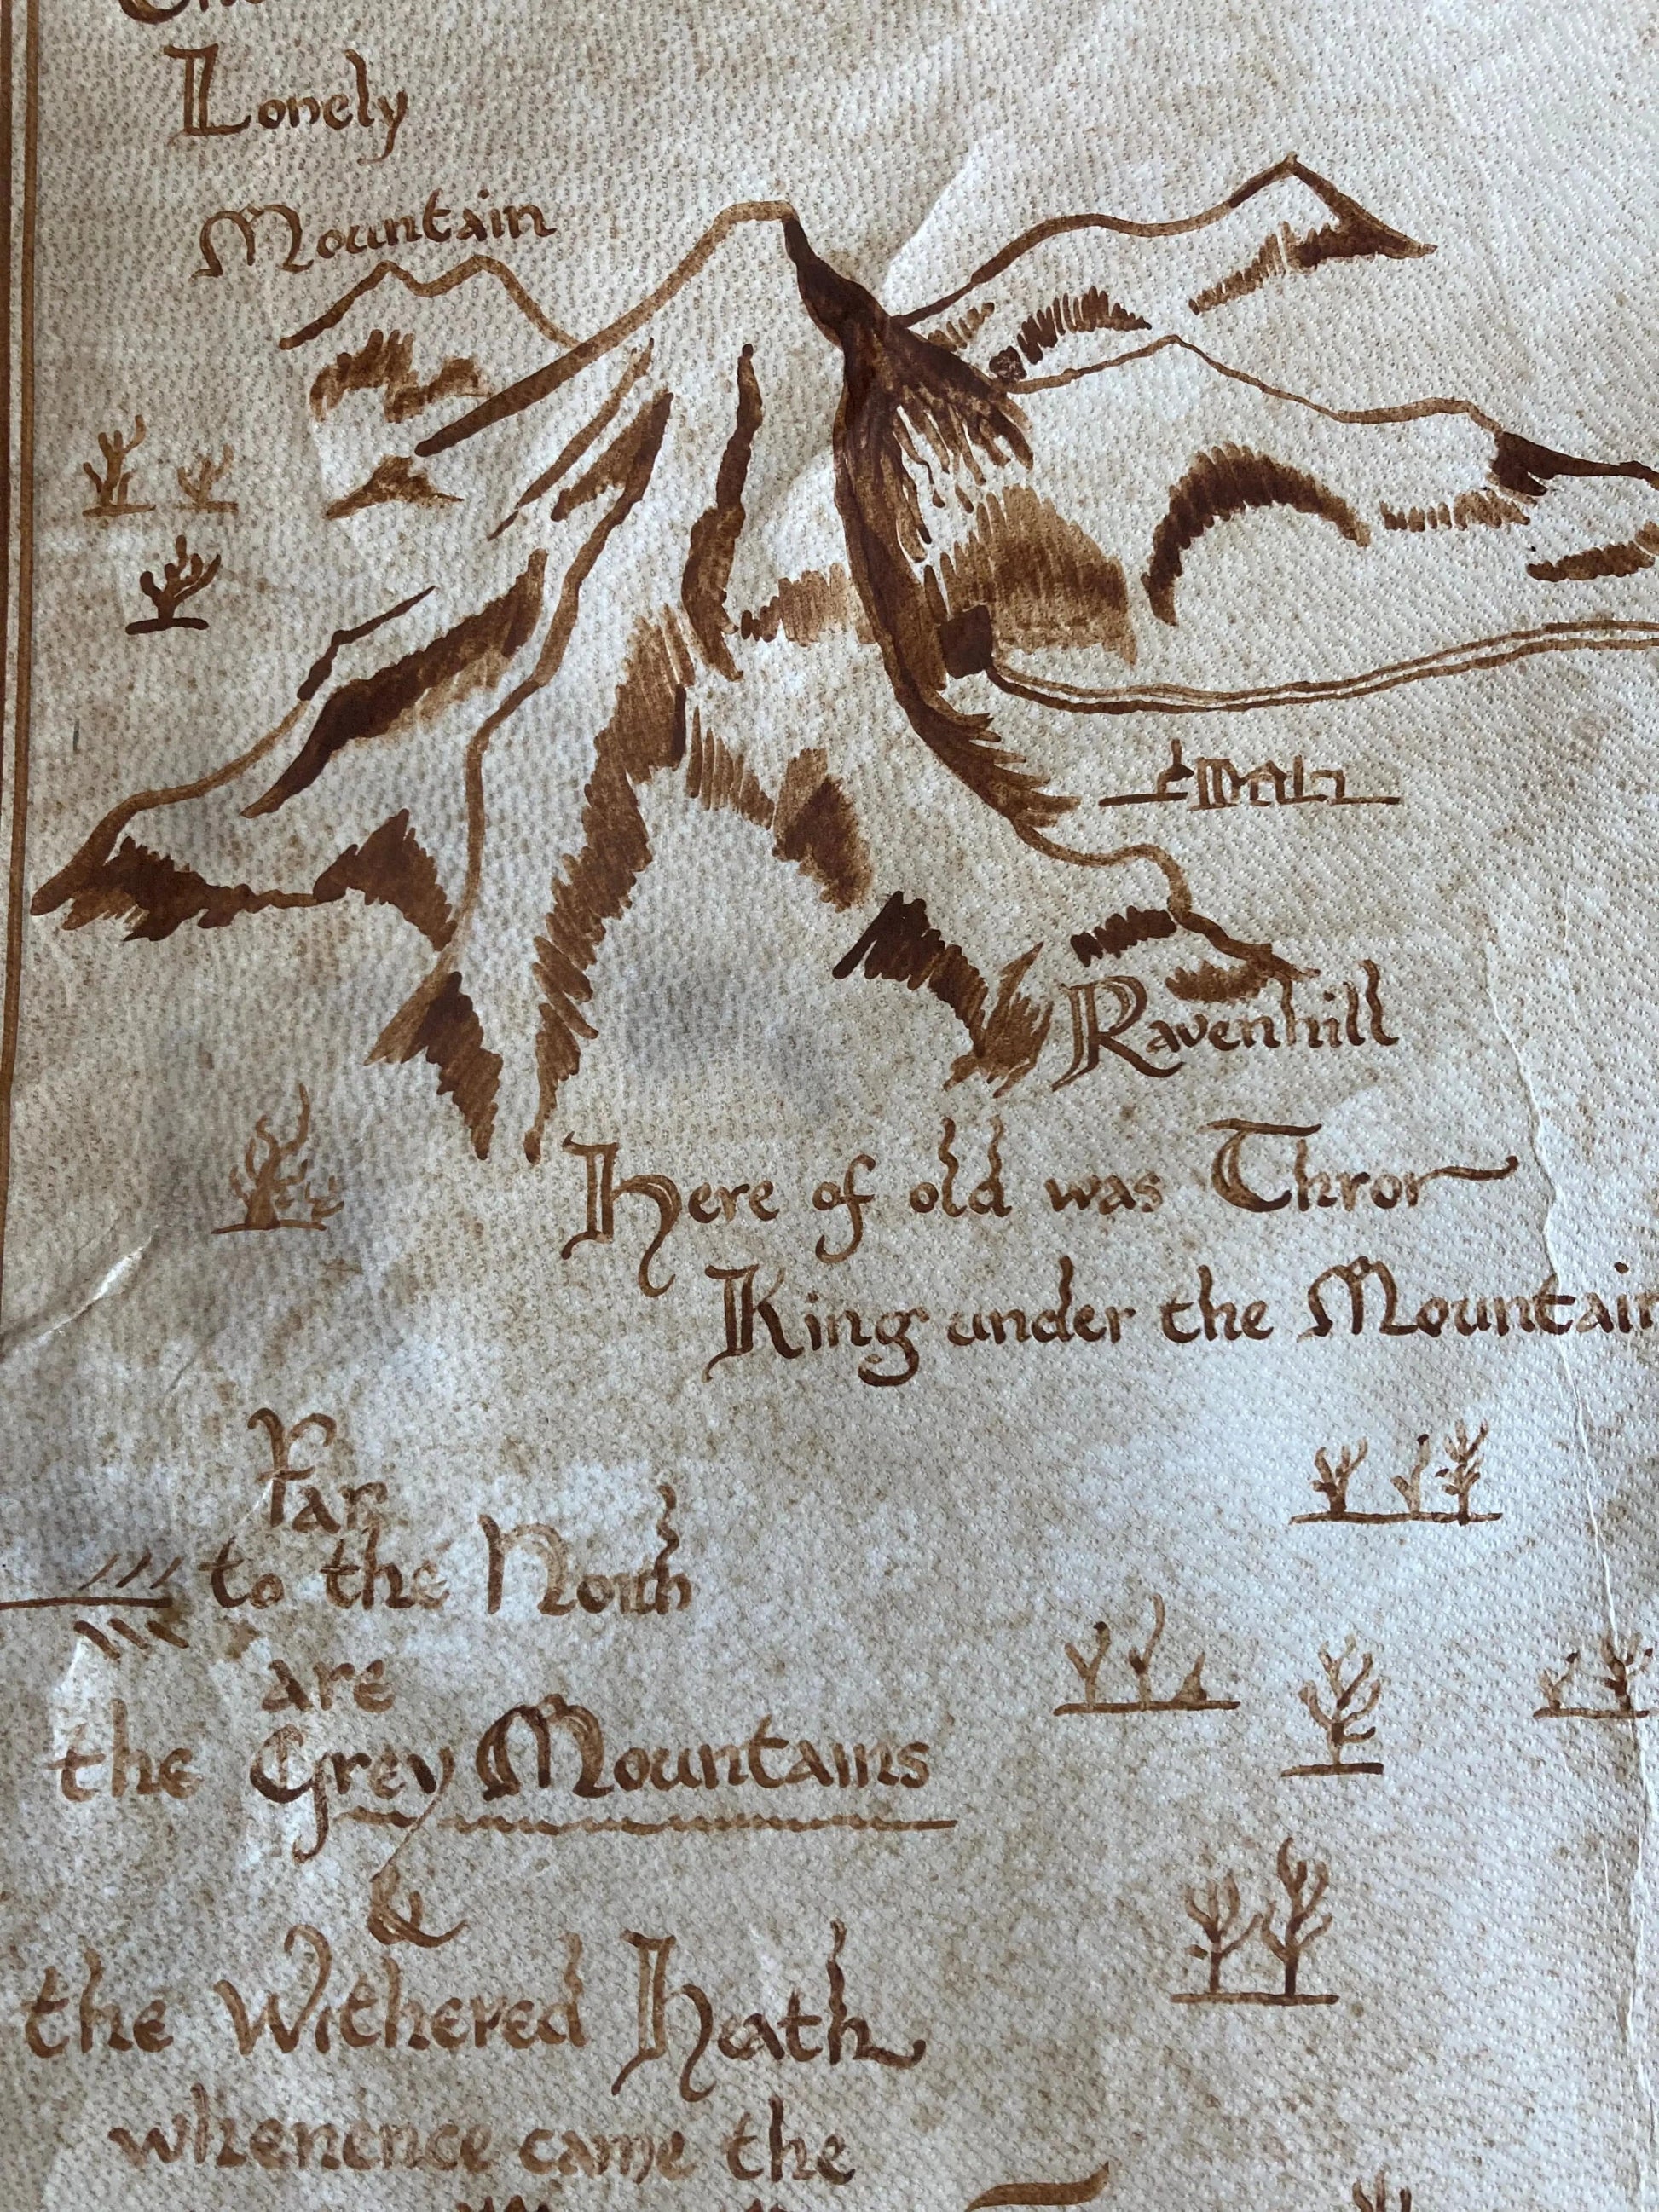 Lonely
Mountain
Ravenhill
Here of old was Thror
King under the Mountain
Far
to the North
are
the Grey Mountains
&
the Withered Heath
whenence came the